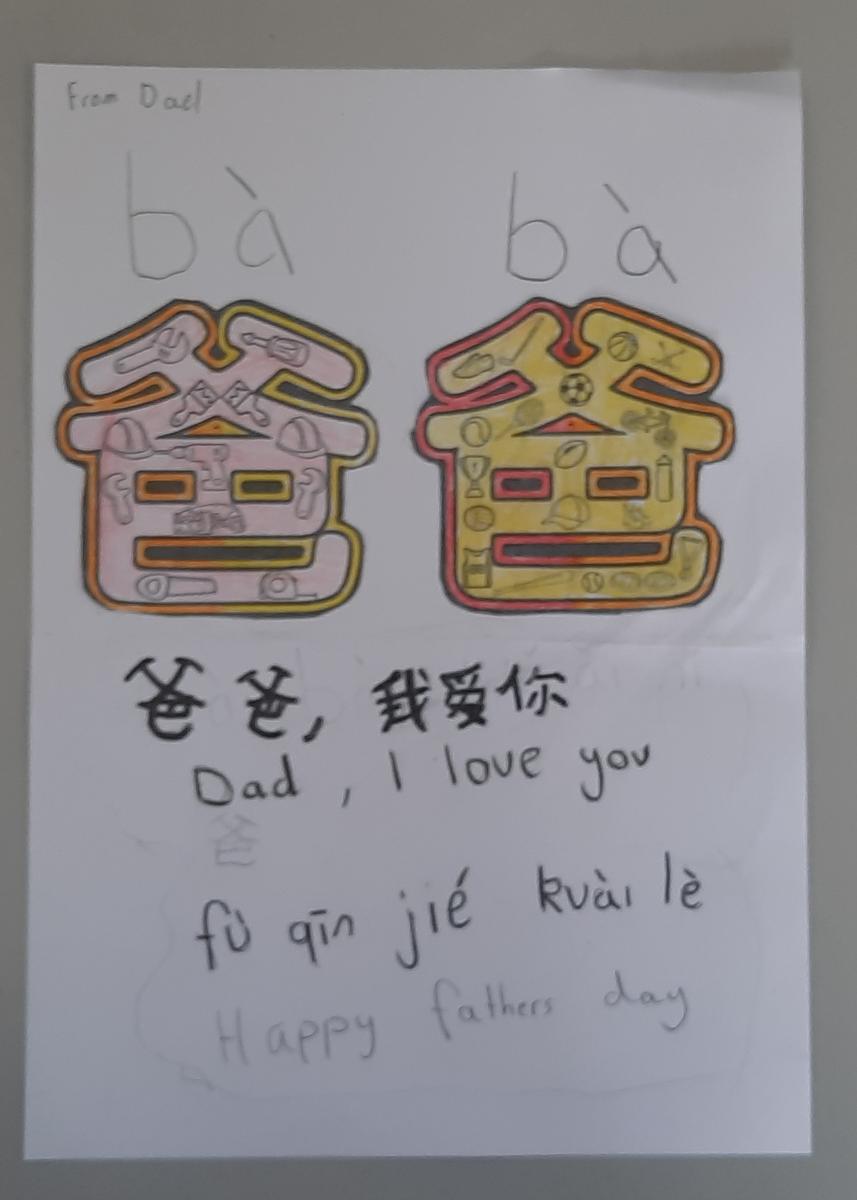 From Dael
bà bà
爸 爸, 我爱你
Dad, I love you
爸
fù qīn jié kuài lè
Happy fathers day